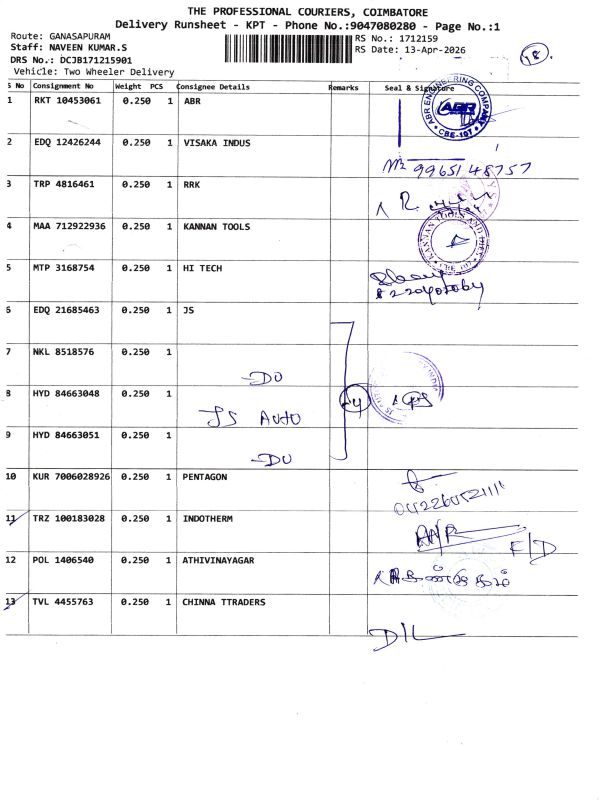 THE PROFESSIONAL COURIERS, COIMBATORE
Delivery Runsheet - KPT - Phone No.:9047080280 - Page No.:1
Route: GANASAPURAM
RS No.: 1712159
Staff: NAVEEN KUMAR.S
RS Date: 13-Apr-2026
18.
DRS No.: DCJB171215901
Vehicle: Two Wheeler Delivery
S No Consignment No Weight PCS Consignee Details Remarks Seal & Signature
1 RKT 10453061 0.250 1 ABR
ABR ENGINEERING COMPANY ABR CBE-107
2 EDQ 12426244 0.250 1 VISAKA INDUS
9965148757
3 TRP 4816461 0.250 1 RRK
R
4 MAA 712922936 0.250 1 KANNAN TOOLS
KANNAN TOOLS AND
5 MTP 3168754 0.250 1 HI TECH
6 EDQ 21685463 0.250 1 JS
7 NKL 8518576 0.250 1
-DO
8 HYD 84663048 0.250 1
JS AUTO
9 HYD 84663051 0.250 1
-DO
10 KUR 7006028926 0.250 1 PENTAGON
11 TRZ 100183028 0.250 1 INDOTHERM
F/D
12 POL 1406540 0.250 1 ATHIVINAYAGAR
13 TVL 4455763 0.250 1 CHINNA TTRADERS
D/L